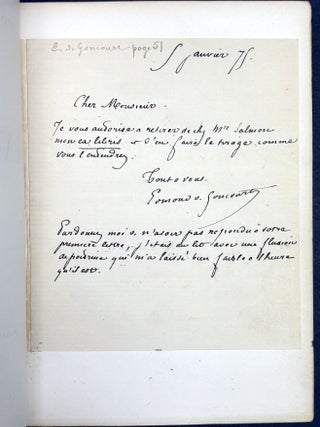 E. de Goncourt page 51
5 janvier 75.
Cher Monsieur.
Je vous autorise a retirer de chez Mrs Salmon
mon ex libris et d'en faire le tirage comme
vous l'entendrez.
Tout a vous.
Edmond de Goncourt
Pardonnez moi de n'avoir pas repondu à votre
premiere lettre, j'etais au lit avec une fluxion
de poitrine qui m'a laissé bien faible a l'heure
qu'il est.